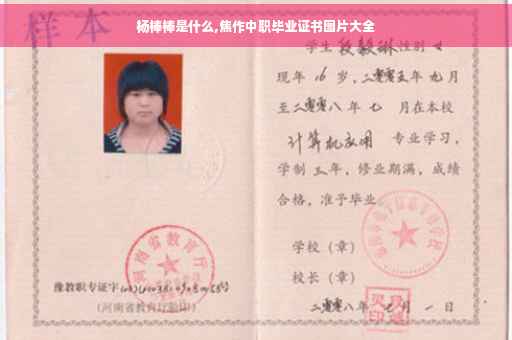 杨棒棒是什么,焦作中职毕业证书图片大全
样本
学生 段毅琳 性别 女
现年 16 岁,二零零五年 九 月
至二零零八年 七 月在本校
计算机应用 专业学习,
学制 三 年,修业期满,成绩
合格,准予毕业
学校(章)
校长(章)
二零零八年 月 一 日
河南省教育厅
豫教职专证字
(河南省教育厅验印)